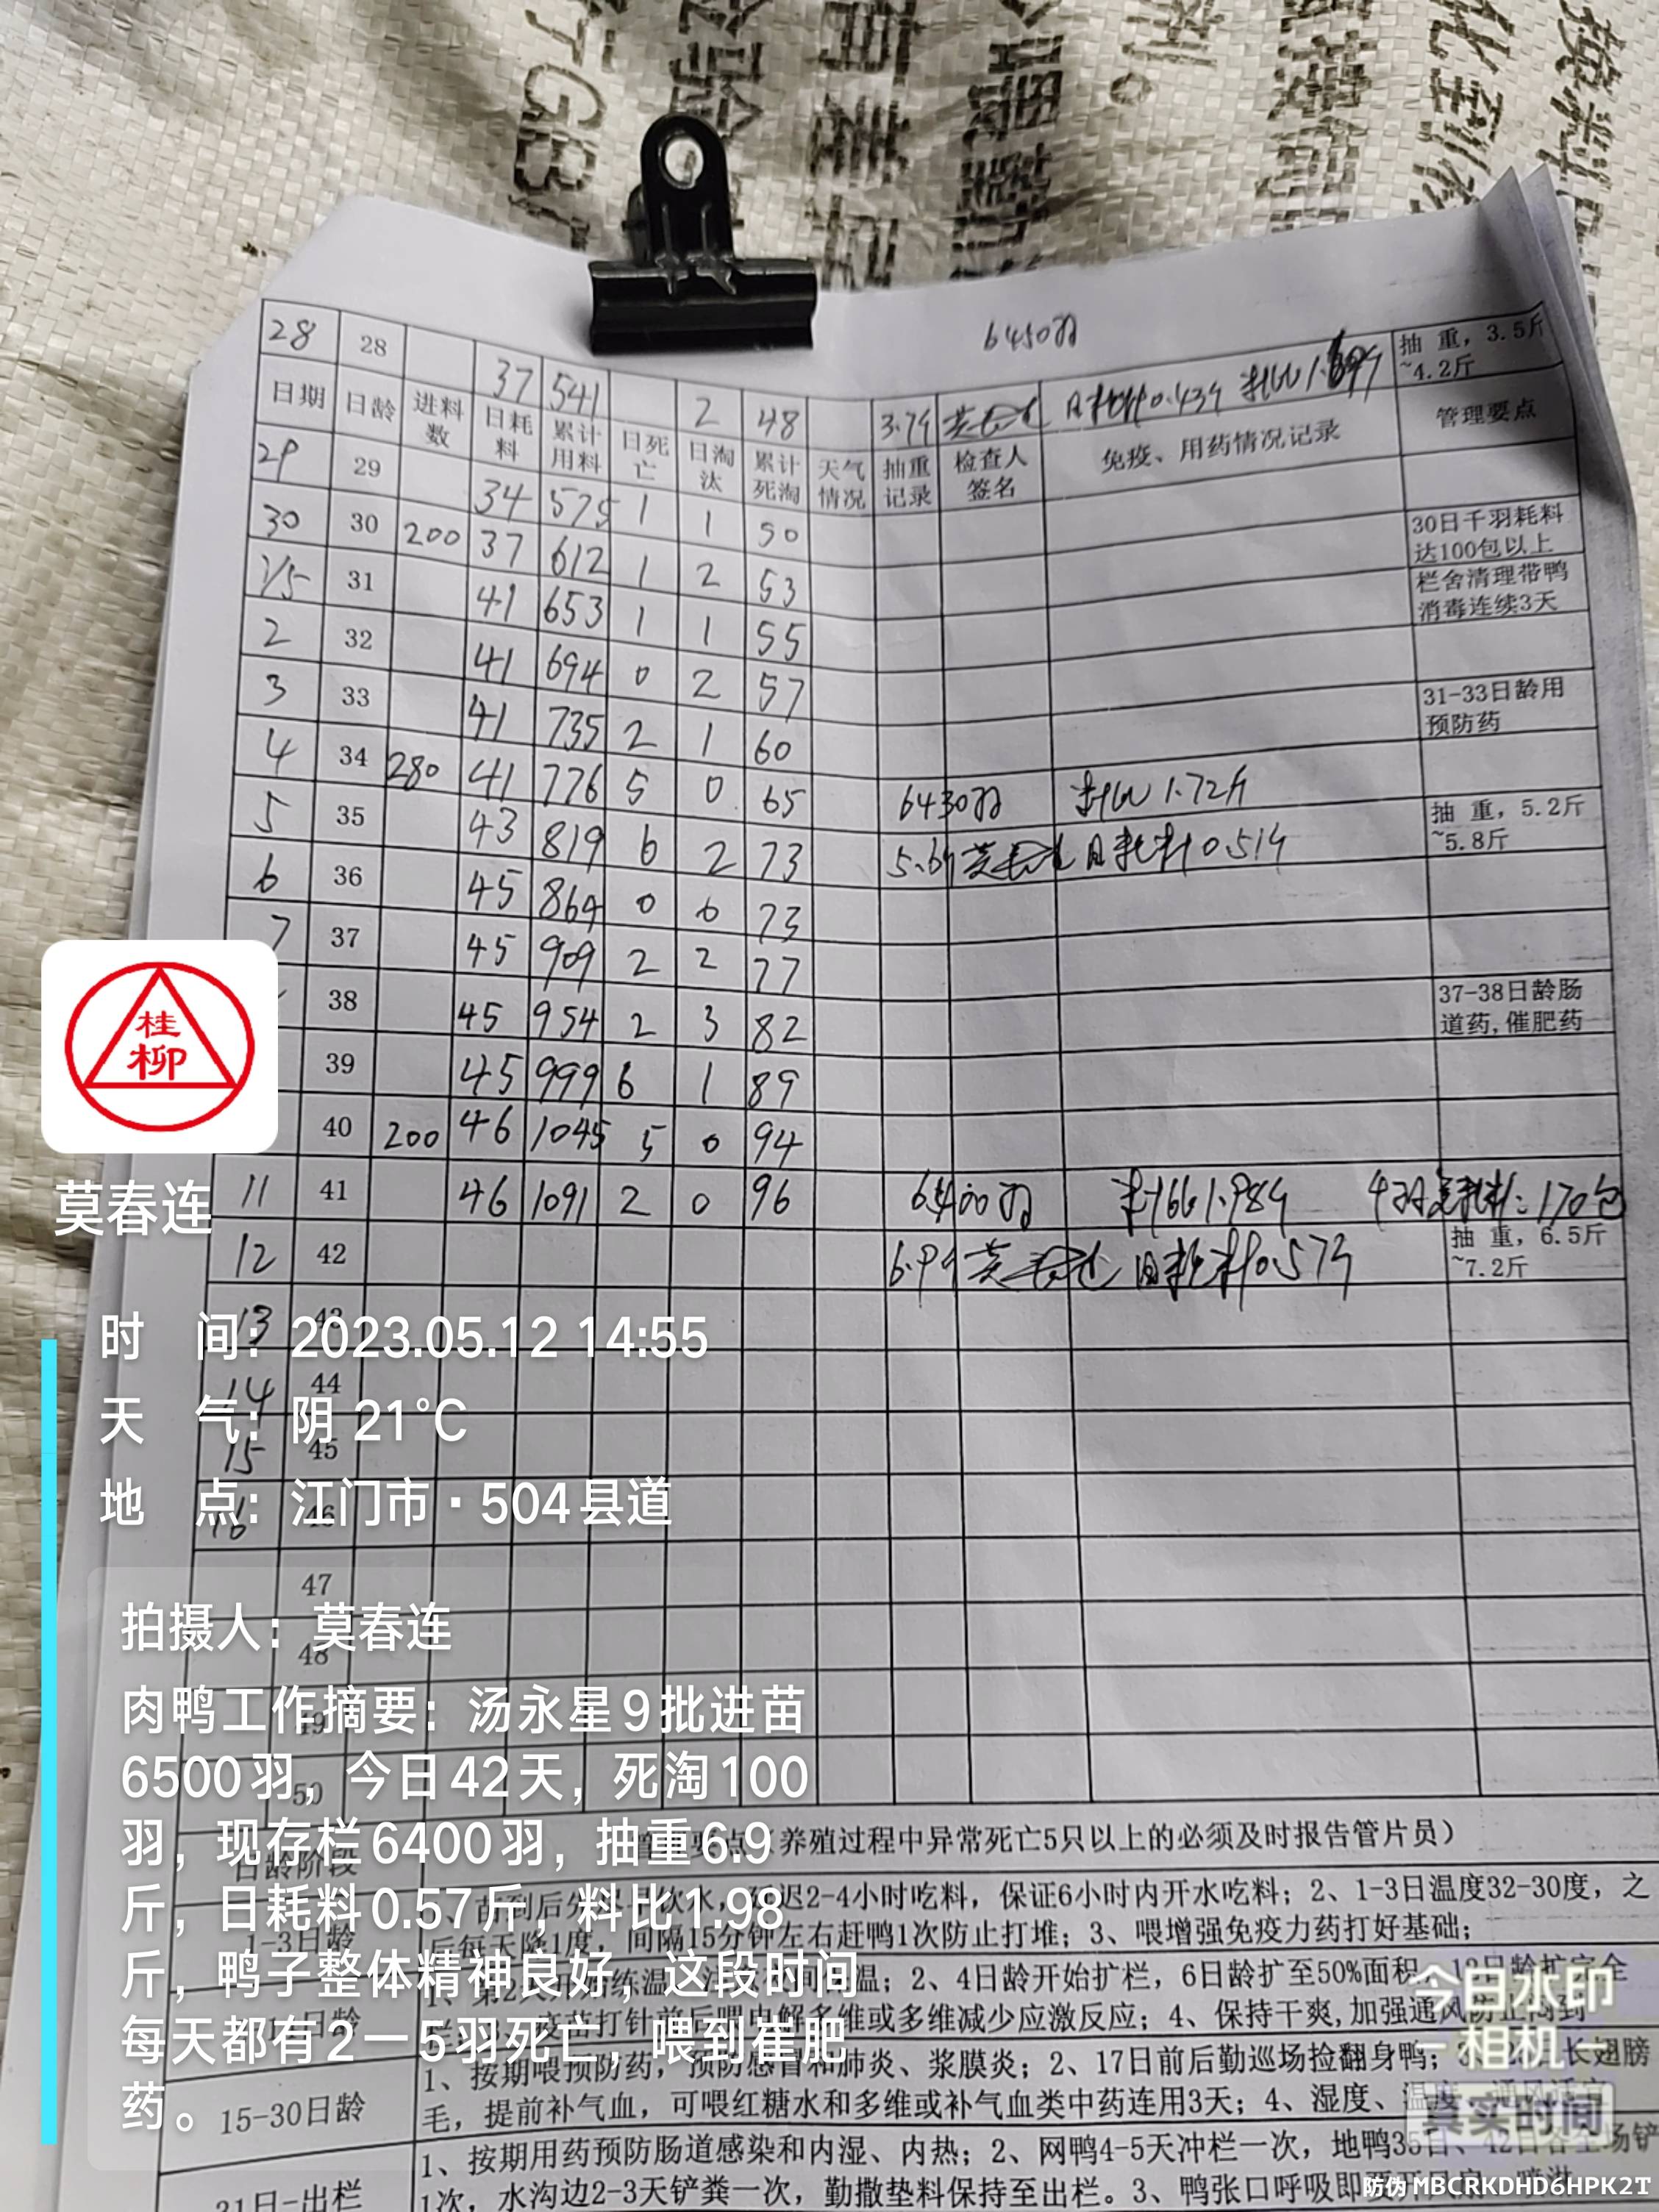 6450羽
28 28 37 541 2 48 3.7斤 抽 重，3.5斤
~4.2斤
日期 日龄 进料数 日耗料 累计用料 日死亡 日淘汰 累计死淘 天气情况 抽重记录 检查人签名 免疫、用药情况记录 管理要点
29 29 34 575 1 1 50
30 30 200 37 612 1 2 53 30日千羽耗料
达100包以上
1/5 31 41 653 1 1 55 栏舍清理带鸭
消毒连续3天
2 32 41 694 0 2 57
3 33 41 735 2 1 60 31-33日龄用
预防药
4 34 280 41 776 5 0 65 6430羽 料比1.72斤
5 35 43 819 6 2 73 5.6斤 莫春连 日耗料0.51斤 抽 重，5.2斤
~5.8斤
6 36 45 864 0 0 73
7 37 45 909 2 2 77
38 45 954 2 3 82 37-38日龄肠
道药,催肥药
39 45 999 6 1 89
40 200 46 1045 5 0 94
11 41 46 1091 2 0 96 6400羽 料比1.98斤 千羽耗料:170包
12 42 6.9斤 莫春连 日耗料0.57斤 抽 重，6.5斤
~7.2斤
13 43
14 44
15 45
16 46
47
48
49
50
桂
柳
莫春连
时 间：2023.05.12 14:55
天 气：阴 21℃
地 点：江门市·504县道
拍摄人：莫春连
肉鸭工作摘要：汤永星9批进苗
6500羽，今日42天，死淘100
羽，现存栏6400羽，抽重6.9
斤，日耗料0.57斤，料比1.98
斤，鸭子整体精神良好，这段时间
每天都有2一5羽死亡，喂到崔肥
药。
日龄阶段 管理要点（养殖过程中异常死亡5只以上的必须及时报告管片员）
1-3日龄 饮水，延迟2-4小时吃料，保证6小时内开水吃料；2、1-3日温度32-30度，之
后每天降1度，间隔15分钟左右赶鸭1次防止打堆；3、喂增强免疫力药打好基础；
2、4日龄开始扩栏，6日龄扩至50%面积，12日龄扩完全
疫苗打针前后喂电解多维或多维减少应激反应；4、保持干爽,加强通风防止闷到
15-30日龄 1、按期喂预防药，预防感冒和肺炎、浆膜炎；2、17日前后勤巡场捡翻身鸭；长翅膀
毛，提前补气血，可喂红糖水和多维或补气血类中药连用3天；4、湿度、温度
31日-出栏 1、按期用药预防肠道感染和内湿、内热；2、网鸭4-5天冲栏一次，地鸭35日、42日各全场铲
1次，水沟边2-3天铲粪一次，勤撒垫料保持至出栏。3、鸭张口呼吸即
今日水印
相机
真实时间
防伪 MBCRKDHD6HPK2T